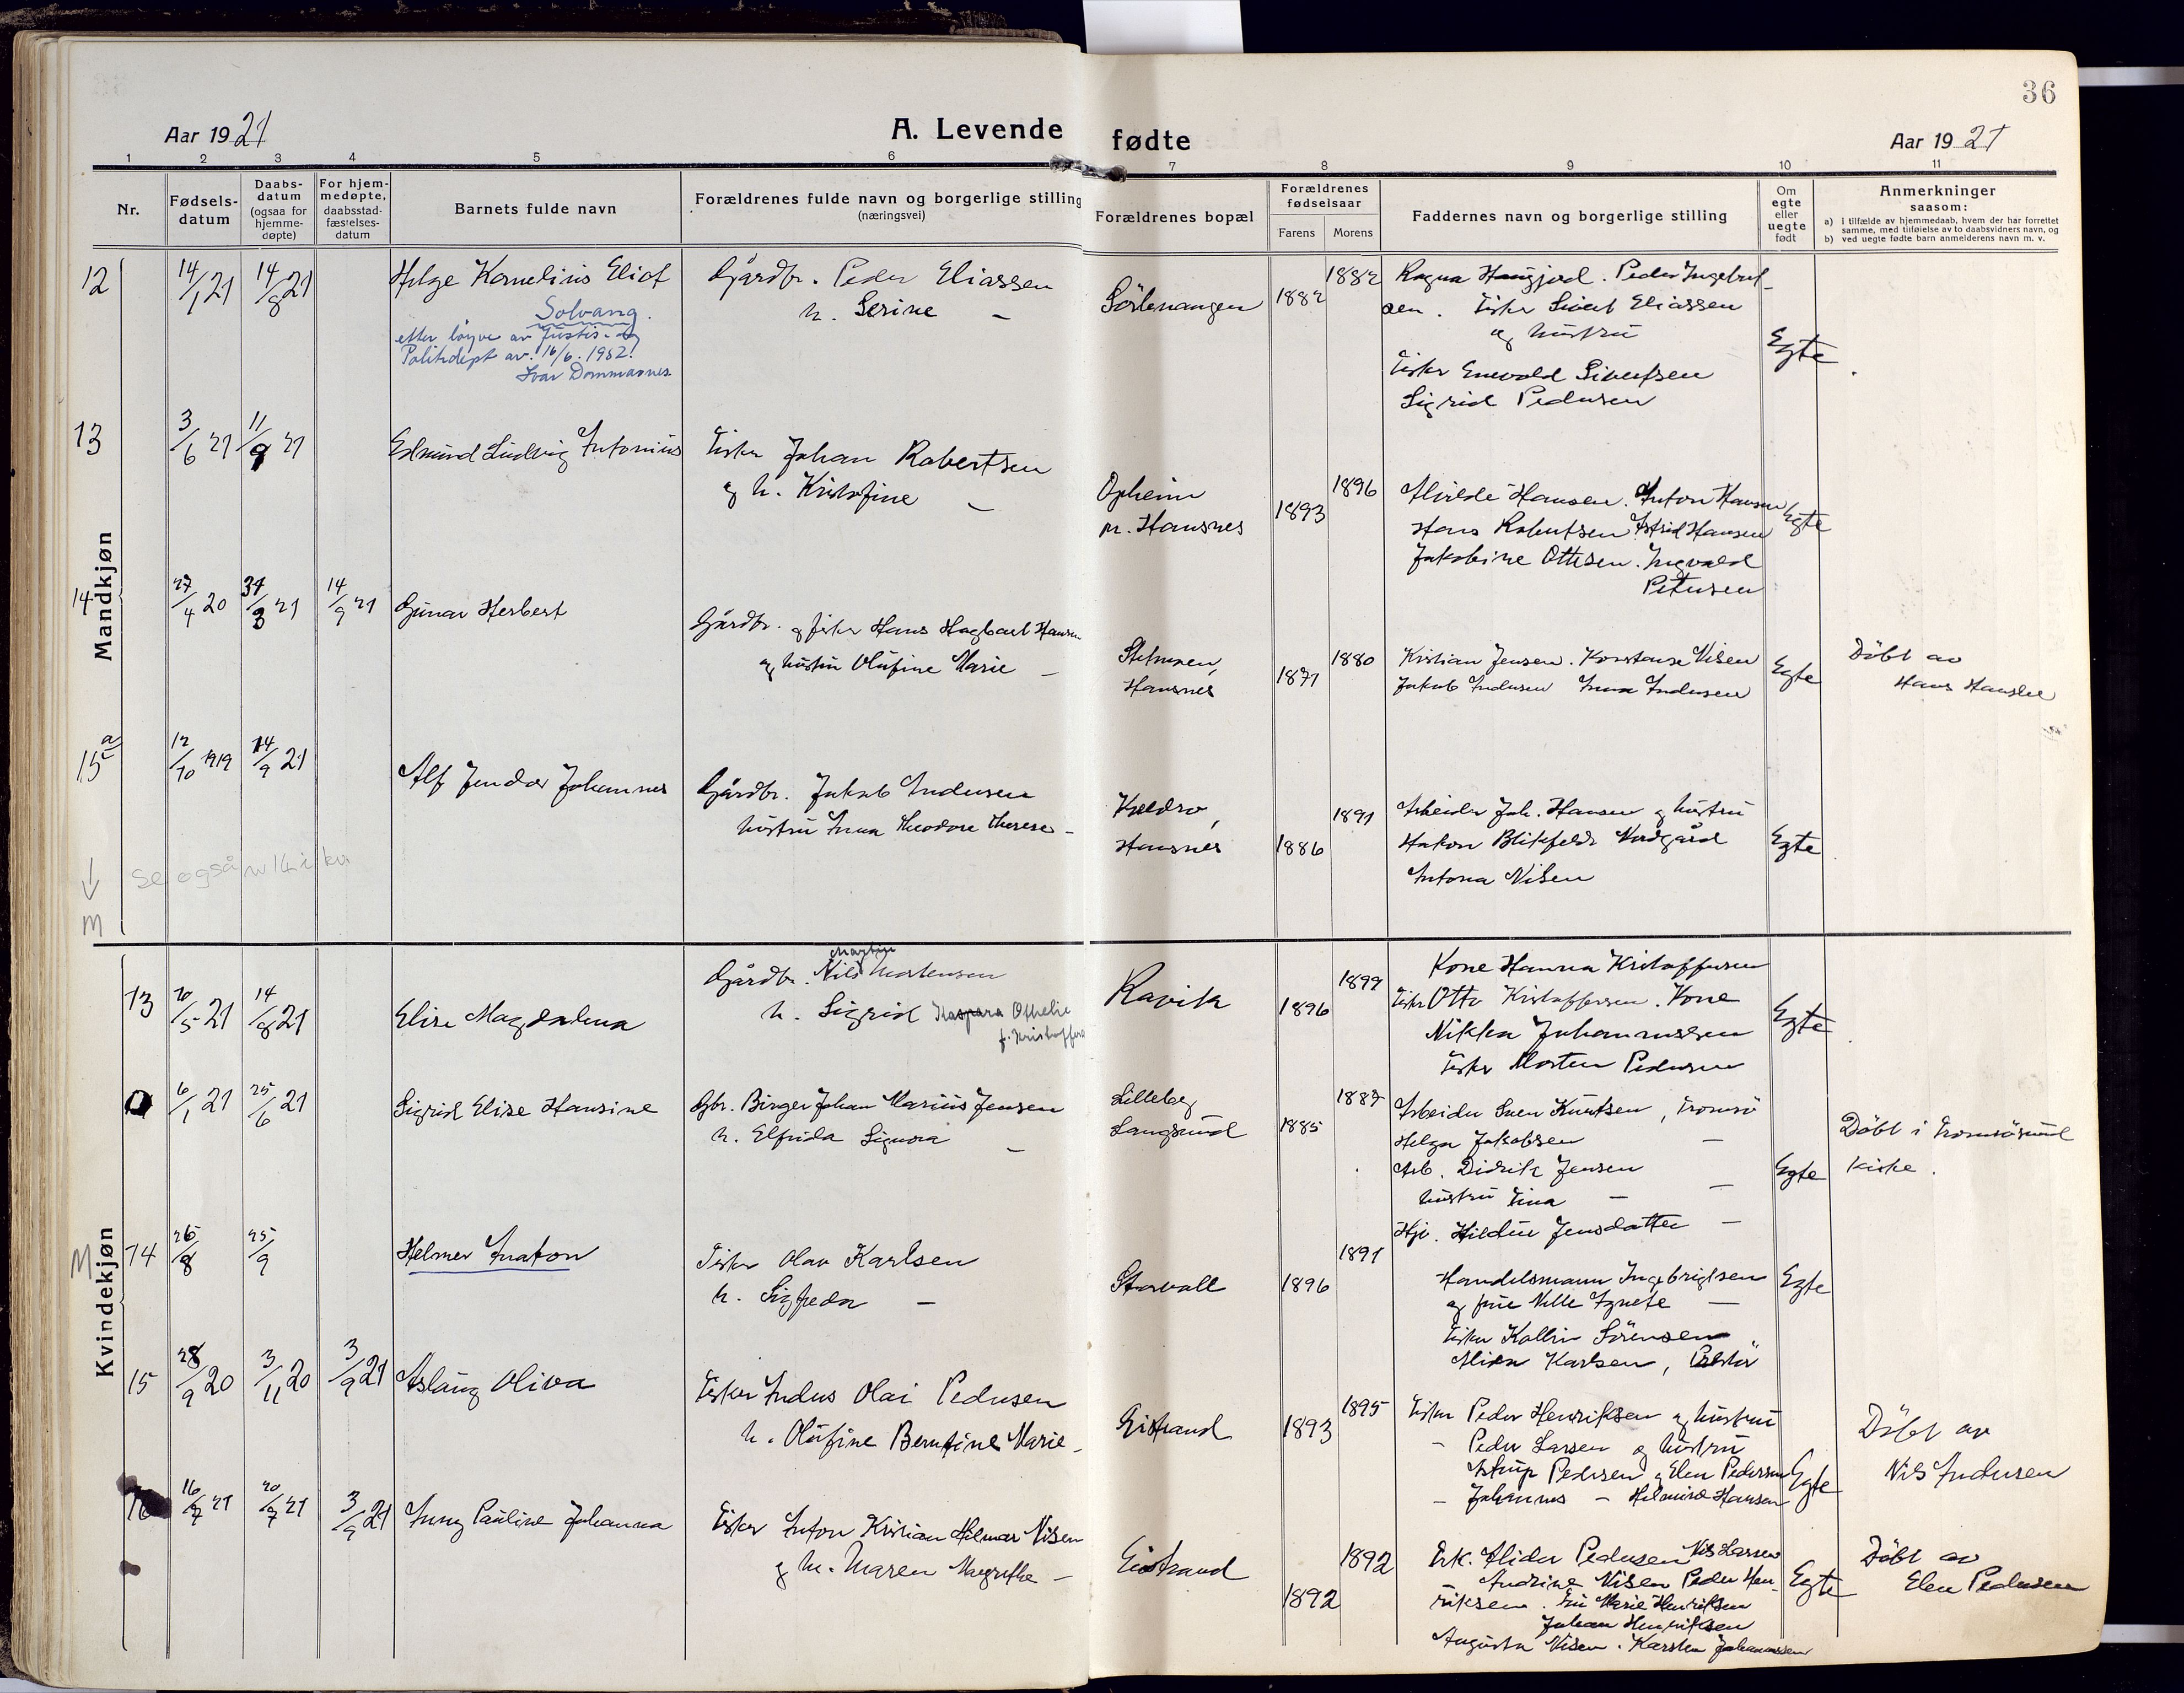 36
Aar 1921
A. Levende fødte
Aar 1921
1 2 3 4 5 6 7 8 9 10 11
Nr.
Fødsels-
datum
Daabs-
datum
(ogsaa for
hjemme-
døpte)
For hjem-
medøpte,
daabsstad-
fæstelses-
datum
Barnets fulde navn
Forældrenes fulde navn og borgerlige stilling
(næringsvei)
Forældrenes bopæl
Forældrenes
fødselsaar
Farens
Morens
Faddernes navn og borgerlige stilling
Om
egte
eller
uegte
født
Anmerkninger
saasom:
a) i tilfælde av hjemmedaab, hvem der har forrettet
samme, med tilføielse av to daabsvidners navn, og
b) ved uegte fødte barn anmelderens navn m. v.
Mandkjøn
12
14/1 21
14/8 21
Helge Kornelius Eliot
Solvang.
etter løyve av Justis- og
Politidept av 16/6. 1952.
Ivar Dommasnes
Gårdbr. Peder Eliassen
h. Serine —
Sörlenangen
1882
1882
Ragna Haugjord. Peder Ingebrigt-
sen. Fisker Sivert Eliassen
og hustru
Fisker Enevold Sivertsen
Sigrid Pedersen
Egte
13
3/6 21
11/9 21
Edmund Ludvig Antonius
Fisker Johan Robertsen
og h. Kristofine —
Opheim
pr. Hansnes
1893
1896
Alvilde Hansen. Anton Hansen
Hans Robertsen Astrid Hansen
Jakobine Ottesen. Ingvald
Petersen
Egte
14
27/4 20
31/3 21
14/9 21
Gunar Herbert
Gårdbr. og fisker Hans Hagbart Hansen
og hustru Olufine Marie —
Hansnes
1871
1880
Kristian Jensen. Konstanse Nilsen
Jakob Andersen Anna Andersen
Egte
Döbt av
Hans Hansen
15a
12/10 1919
14/9 21
Alf Jendor Johannes
Gårdbr. Jakob Andersen
hustru Anna Theodore Therese —
Hansnes
1886
1891
Arbeider Joh. Hansen og hustru
Hakon Blikfeldt Nordgård
Antona Nilsen
Egte
se også nr 14 i kv
M
Kvindekjøn
13
10/5 21
14/8 21
Elise Magdalena
Gårdbr. Nils Martin Mortensen
h. Sigrid Kaspara Othelie
f. Kristoffers
Ravik
1896
1899
Kone Hanna Kristoffersen
Fisker Otto Kristoffersen. Kone
Nikka Johannessen
Fisker Morten Pedersen
Egte
6/1 21
25/6 21
Sigrid Elise Hansine
Gbr. Birger Johan Marius Jensen
h. Elfrida Signora —
Lilleberg
Langsund
1885
1887
Arbeider Sven Knutsen, Tromsö
Helga Jakobsen —
Arb. Didrik Jensen
hustru Tina — —
Hjr. Hildur Jensdatter —
Egte
Döbt i Tromsösund
kirke.
M 14
26/8
25/9
Helmer Anaton
Fisker Olav Karlsen
h. Sigfreda —
Storvoll
1896
1891
Handelsmann Ingebrigtsen
og frue Nille Agnete —
Fisker Kollin Sörensen
Alida Karlsen,
Egte
15
28/9 20
3/11 20
3/9 21
Aslaug Oliva
Fisker Andus Olai Pedersen
h. Olufine Berntine Marie —
Eistrand
1893
1895
Fisker Peder Henriksen og hustru
— Peder Larsen og hustru
Astrup Pedersen og Elen Pedersen
— Johannes — Helmine Hansen
Egte
Döbt av
Nils Andersen
16
16/7 21
20/7 21
3/9 21
Anny Pauline Johanna
Fisker Anton Kristian Hilmar Nilsen
og h. Maren Margrethe —
Eistrand
1892
1892
Erk. Alida Pedersen Nils Larsen
— Andrine Nilsen Peder Hen-
riksen. Marie Henriksen
Johan Henriksen
Augusta Nilsen. Karsten Johannessen
Egte
Döbt av
Elen Pedersen